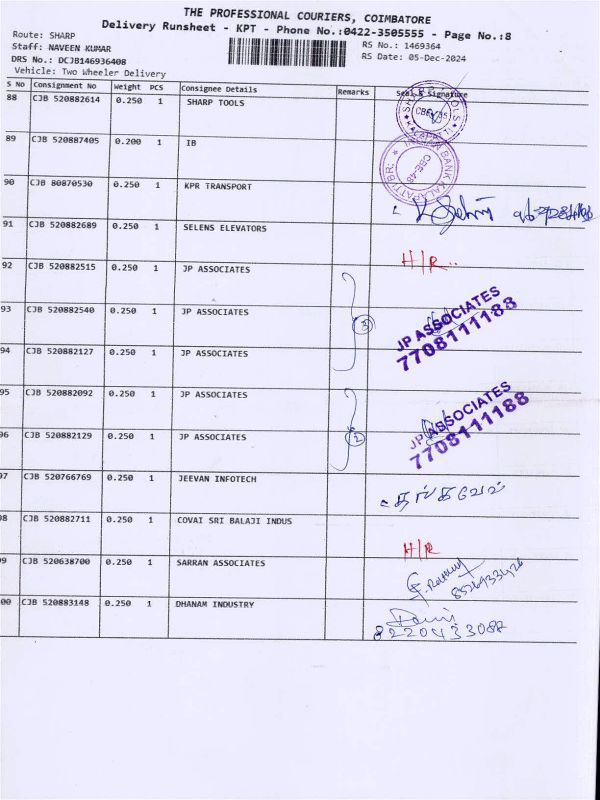 THE PROFESSIONAL COURIERS, COIMBATORE
Delivery Runsheet - KPT - Phone No.:0422-3505555 - Page No.:8
Route: SHARP
Staff: NAVEEN KUMAR
DRS No.: DCJB146936408
Vehicle: Two Wheeler Delivery
RS No.: 1469364
RS Date: 05-Dec-2024
S No Consignment No Weight PCS Consignee Details Remarks Seal & Signature
88 CJB 520882614 0.250 1 SHARP TOOLS
89 CJB 520887405 0.200 1 IB
KALAPATTI BR. CBE-48
90 CJB 80870530 0.250 1 KPR TRANSPORT
91 CJB 520882689 0.250 1 SELENS ELEVATORS H/R..
92 CJB 520882515 0.250 1 JP ASSOCIATES
93 CJB 520882540 0.250 1 JP ASSOCIATES 3 JP ASSOCIATES
7708111188
94 CJB 520882127 0.250 1 JP ASSOCIATES
95 CJB 520882092 0.250 1 JP ASSOCIATES
96 CJB 520882129 0.250 1 JP ASSOCIATES 2 JP ASSOCIATES
7708111188
97 CJB 520766769 0.250 1 JEEVAN INFOTECH தங்கவேல்
98 CJB 520882711 0.250 1 COVAI SRI BALAJI INDUS H/R
99 CJB 520638700 0.250 1 SARRAN ASSOCIATES
00 CJB 520883148 0.250 1 DHANAM INDUSTRY
8220433088